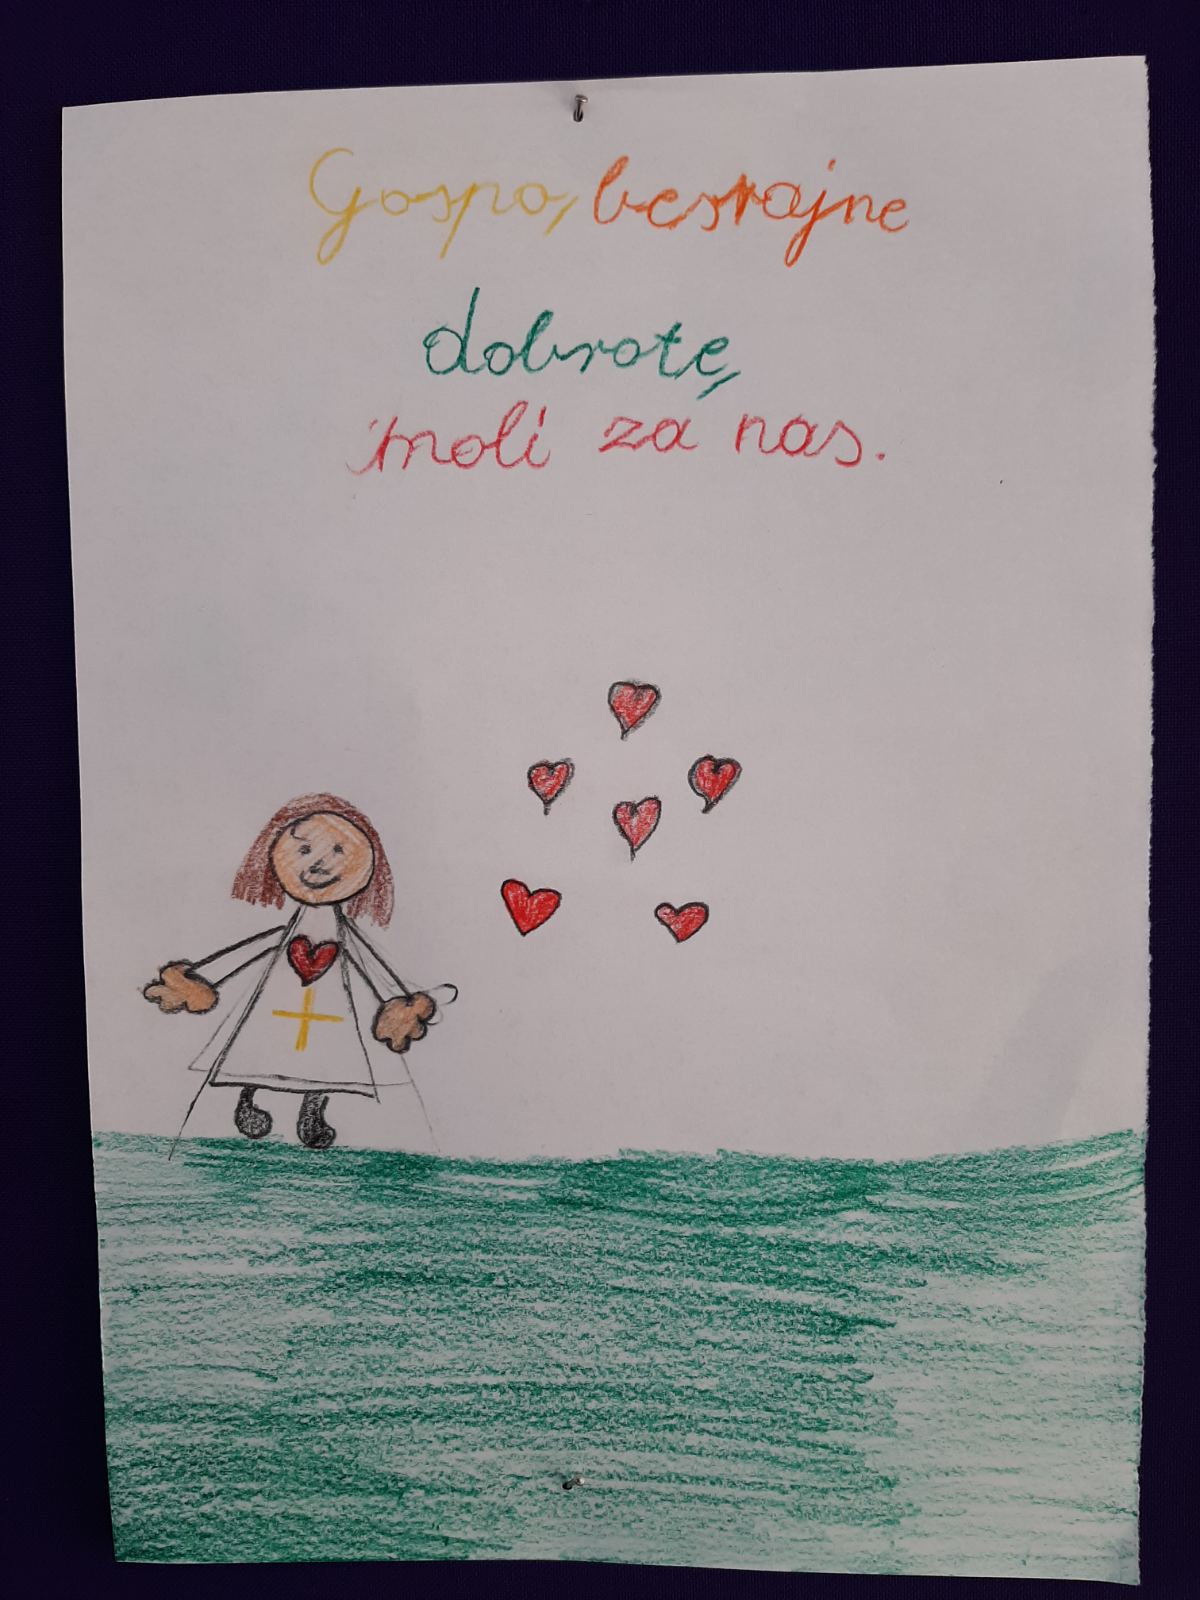 Gospo, beskrajne
dobrote,
moli za nas.